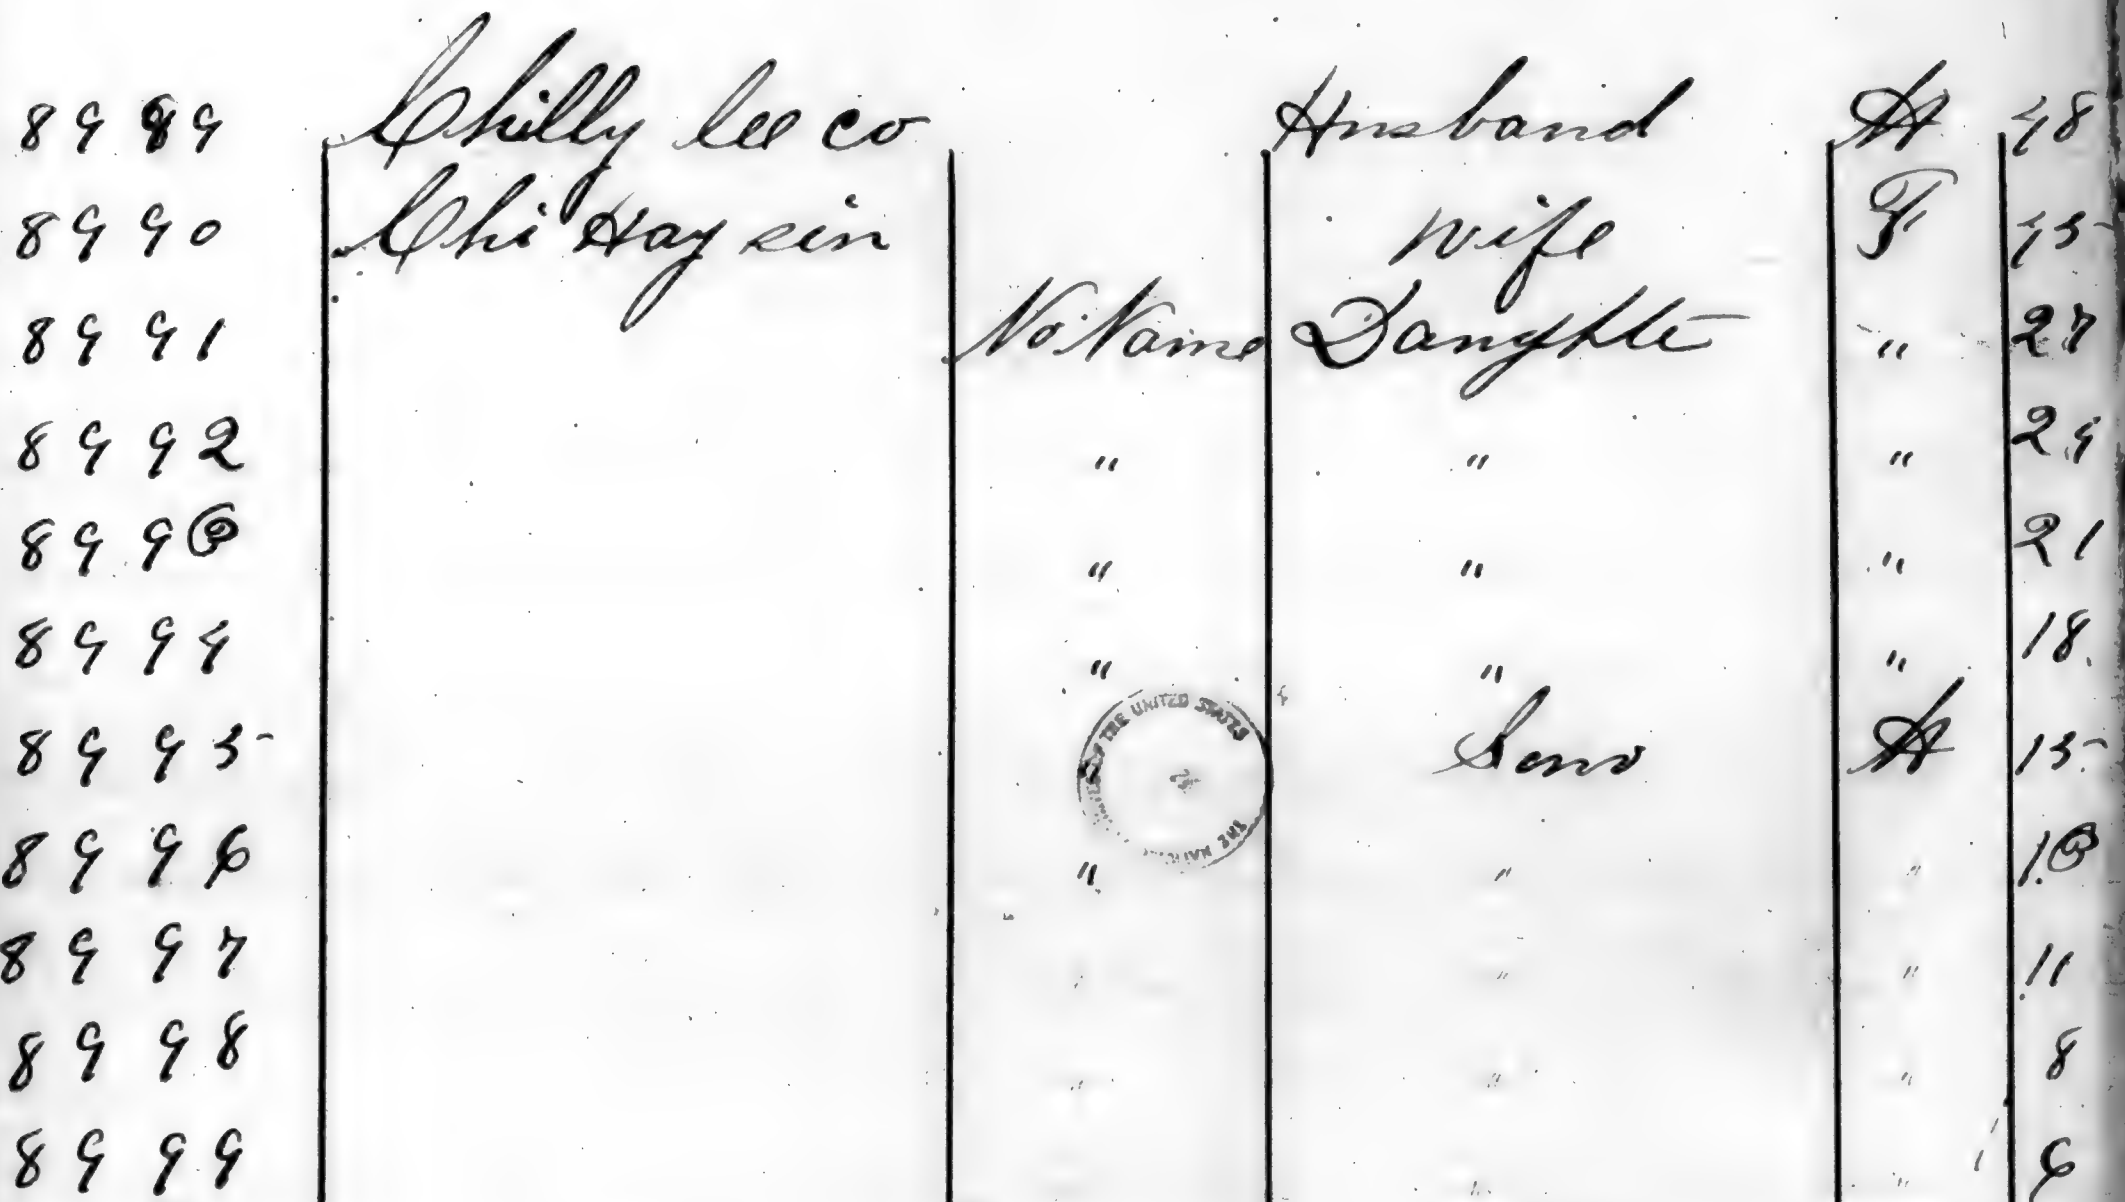 8989 Chilly lee co Husband M 48
8990 Chi Hay sin wife F 45
8991 No Name Daughter " 27
8992 " " " 24
8993 " " " 21
8994 " " " 18
8995 Son M 15
8996 " " " 13
8997 " " " 11
8998 " " " 8
8999 " " 6
OF THE UNITED STATES
THE